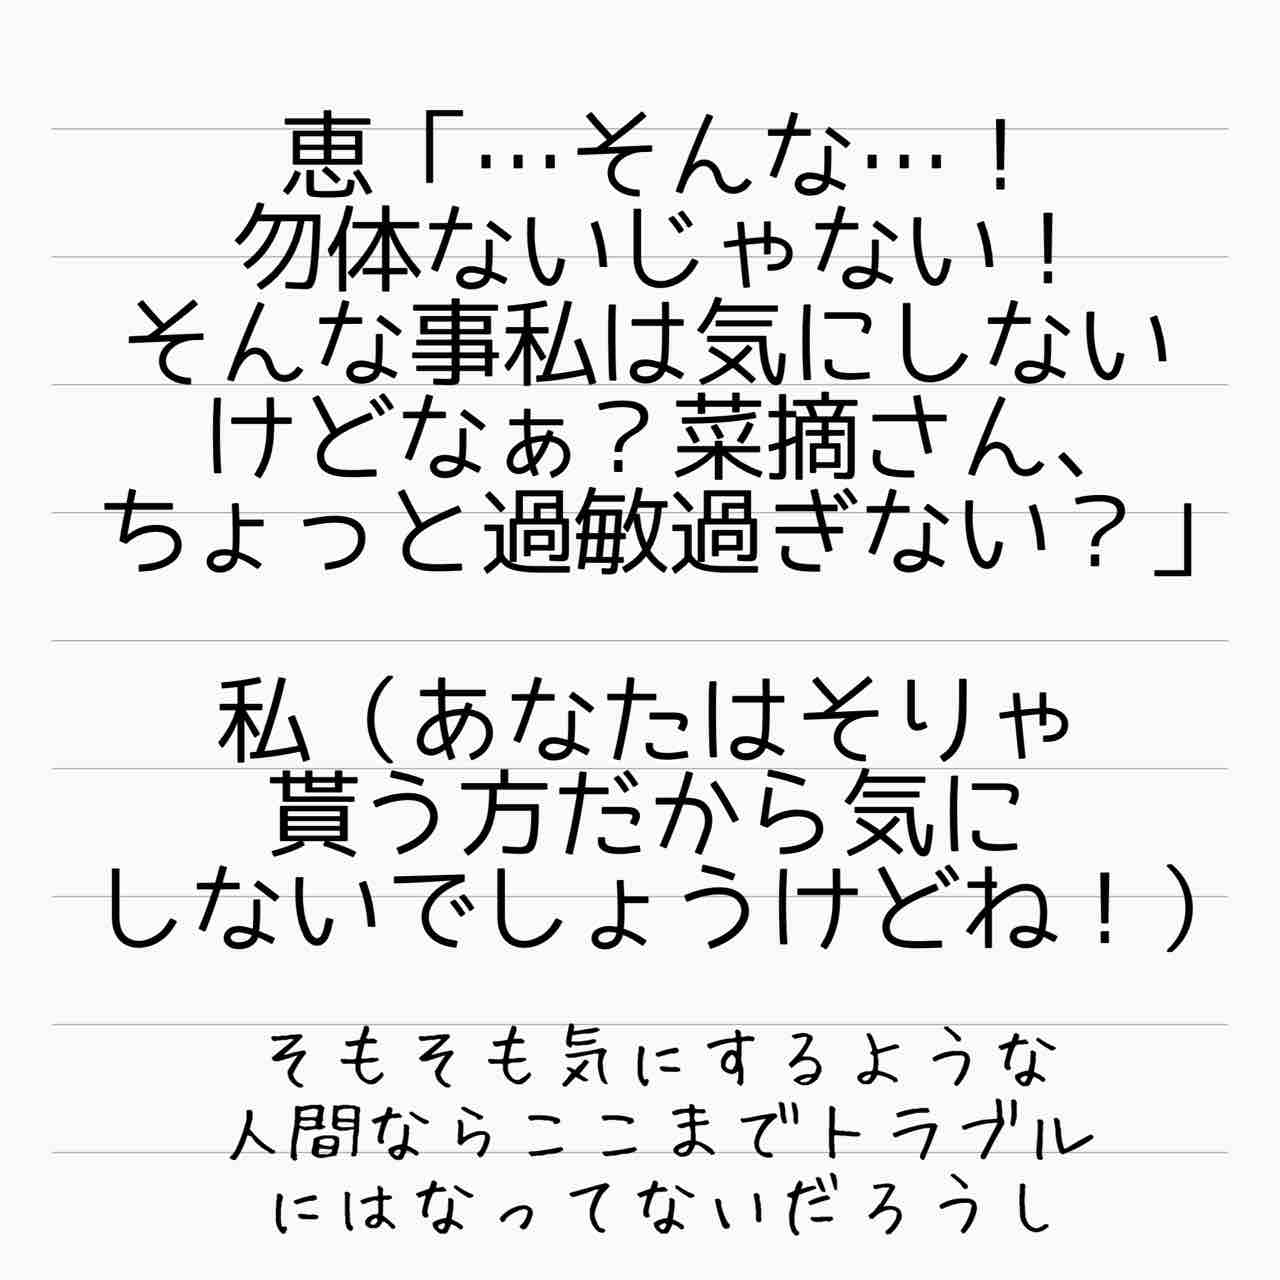 恵「…そんな…！
勿体ないじゃない！
そんな事私は気にしない
けどなぁ？菜摘さん、
ちょっと過敏過ぎない？」
私（あなたはそりゃ
貰う方だから気に
しないでしょうけどね！）
そもそも気にするような
人間ならここまでトラブル
にはなってないだろうし